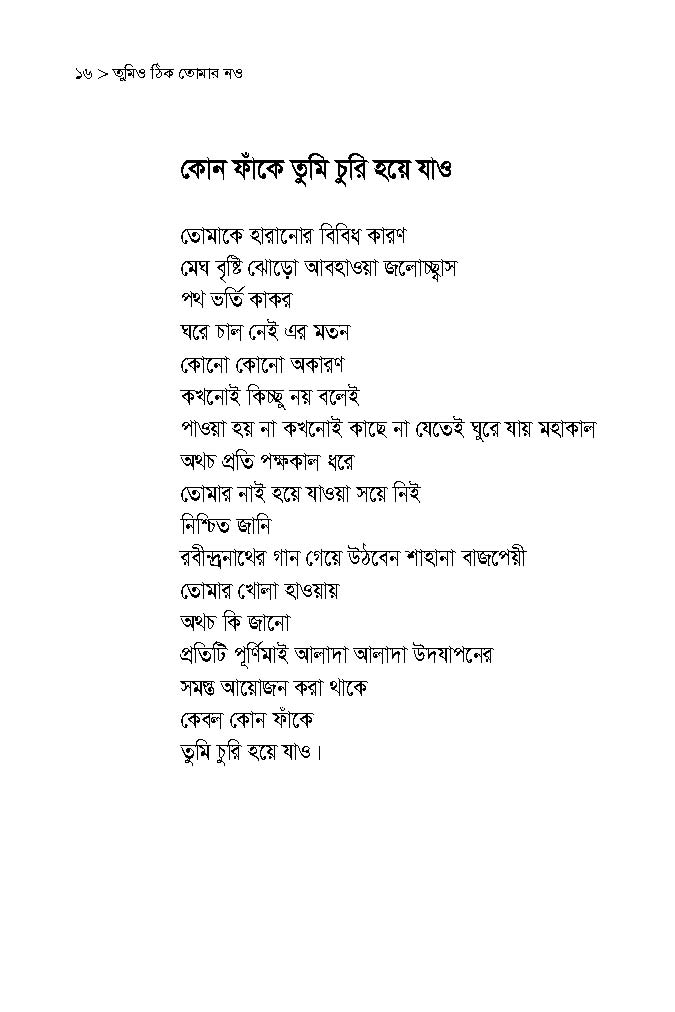 ১৬ > তুমিও ঠিক তোমার নও
কোন ফাঁকে তুমি চুরি হয়ে যাও
তোমাকে হারানোর বিবিধ কারণ
মেঘ বৃষ্টি ঝোড়ো আবহাওয়া জলোচ্ছ্বাস
পথ ভর্তি কাকর
ঘরে চাল নেই এর মতন
কোনো কোনো অকারণ
কখনোই কিচ্ছু নয় বলেই
পাওয়া হয় না কখনোই কাছে না যেতেই ঘুরে যায় মহাকাল
অথচ প্রতি পক্ষকাল ধরে
তোমার নাই হয়ে যাওয়া সয়ে নিই
নিশ্চিত জানি
রবীন্দ্রনাথের গান গেয়ে উঠবেন শাহানা বাজপেয়ী
তোমার খোলা হাওয়ায়
অথচ কি জানো
প্রতিটি পূর্ণিমাই আলাদা আলাদা উদযাপনের
সমস্ত আয়োজন করা থাকে
কেবল কোন ফাঁকে
তুমি চুরি হয়ে যাও।